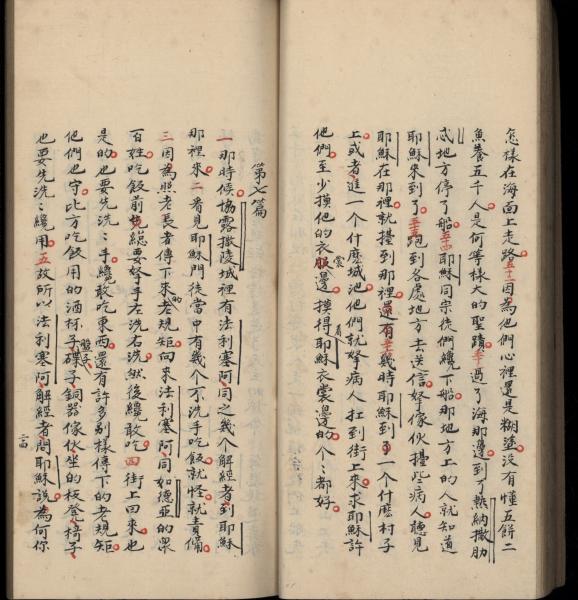 怎樣在海面上走路五十二因為他們心裡還是糊塗沒有懂五餅二
魚養五千人是何等樣大的聖蹟五十三過了海那邊到了熱納撒肋
忒地方停了船五十四耶穌同宗徒們纔下船那地方上的人就知道
耶穌來到了五十五跑到各處地方去送信拏傢伙擡些病人聽見
耶穌在那裡就擡到那裡還有五十六幾時耶穌到了一个什麼村子
上或者進一个什麼城池他們就拏病人扛到街上來求耶穌許
他們至少摸他的衣服邊摸得耶穌衣裳邊的个〻都好
裳
有
第七篇
一那時候協露撒陵城裡有法利塞阿同之幾个解經者到耶穌
那裡來二看見耶穌門徒當中有幾个不洗手吃飯就怪就責備
三因為照老長者傳下來的老規矩向來法利塞阿同如德亞的衆
百姓吃飯前頭總要拏手左洗右洗然後纔敢吃四街上回來也
是的也要先洗〻手纔敢吃東西還有許多別樣傳下的老規矩
他們也守比方吃飯用的酒杯子碟子銅器傢伙坐的枝凳椅子
盤子
也要先洗〻纔用五故所以法利塞阿解經者問耶穌說為何你